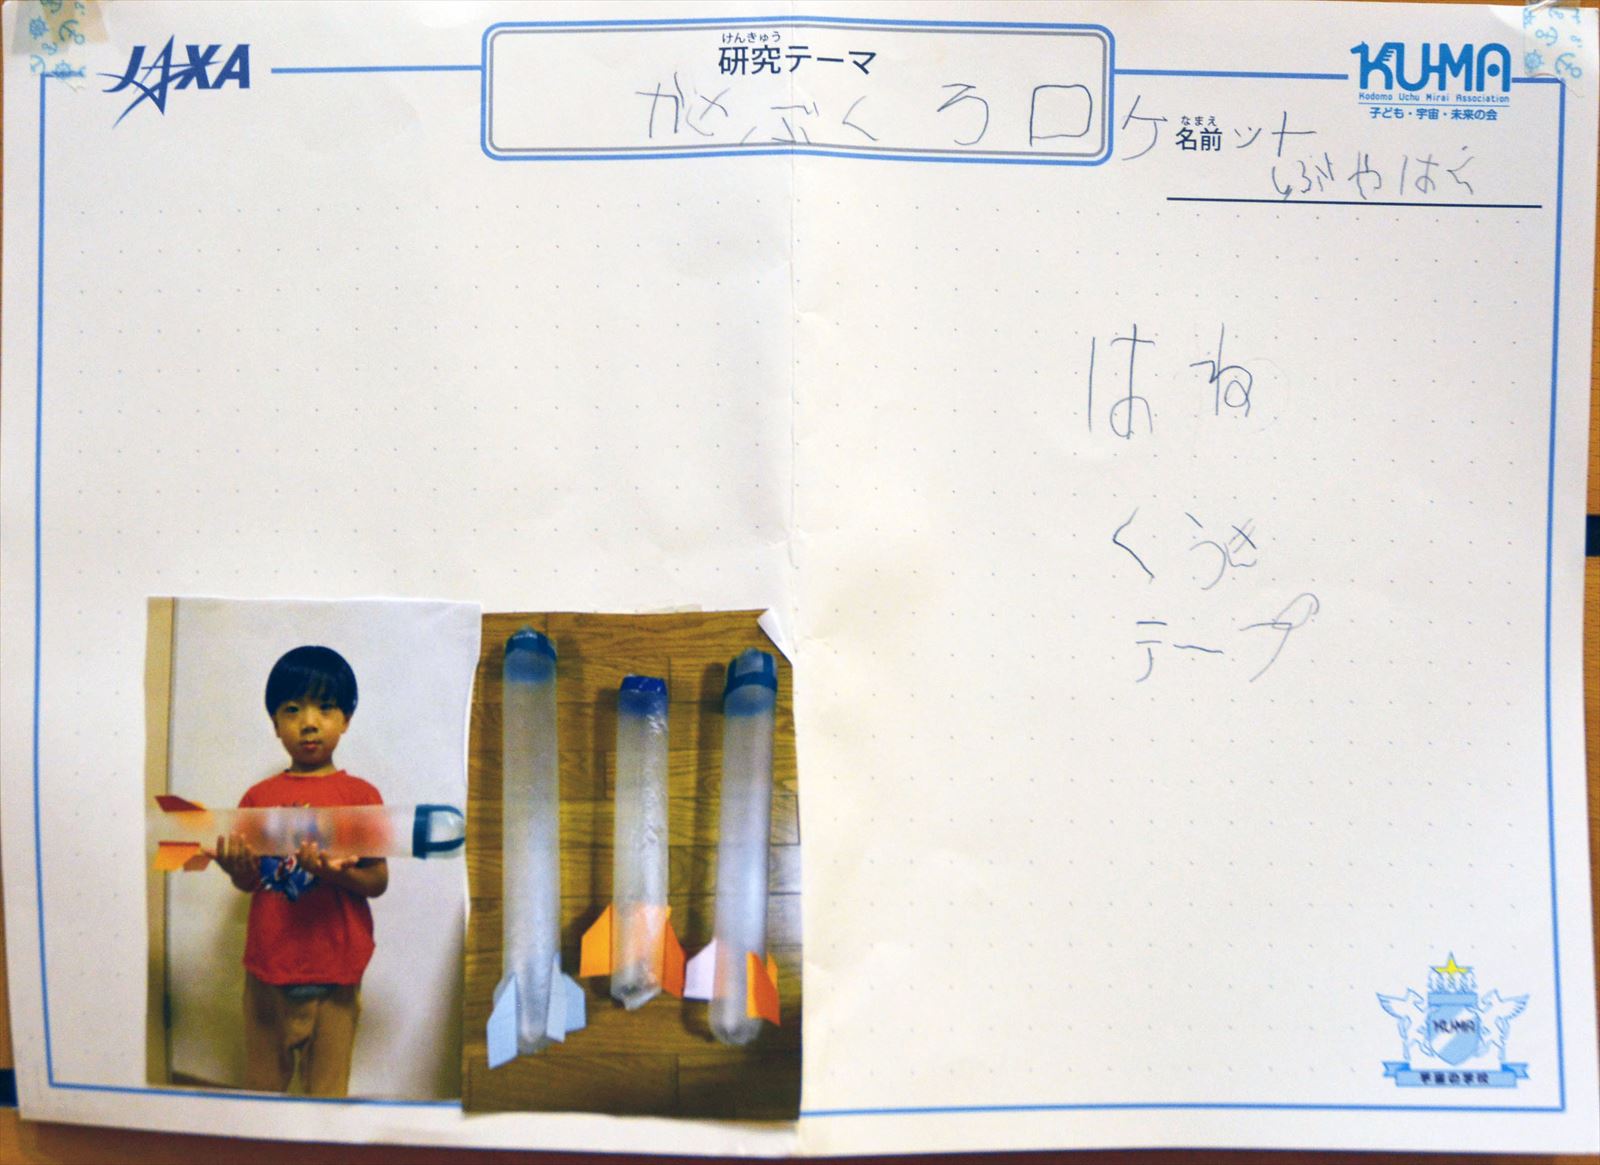 JAXA
けんきゅう
研究テーマ
KU-MA
Kodomo Uchu Mirai Association
子ども・宇宙・未来の会
がさぶくろロケット
なまえ
名前
はね
くうき
テープ
KU-MA
宇宙の学校